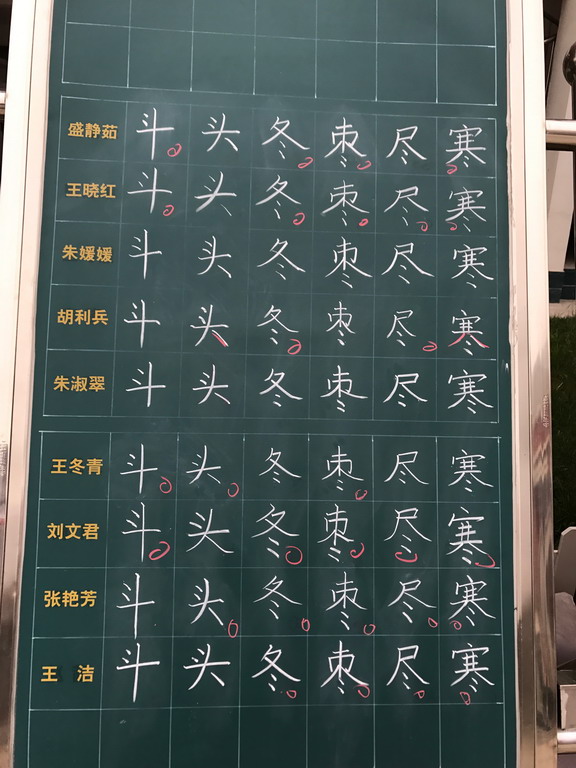 盛静茹 斗 头 冬 枣 尽 寒
王晓红 斗 头 冬 枣 尽 寒
朱媛媛 斗 头 冬 枣 尽 寒
胡利兵 斗 头 冬 枣 尽 寒
朱淑翠 斗 头 冬 枣 尽 寒
王冬青 斗 头 冬 枣 尽 寒
刘文君 斗 头 冬 枣 尽 寒
张艳芳 斗 头 冬 枣 尽 寒
王 洁 斗 头 冬 枣 尽 寒